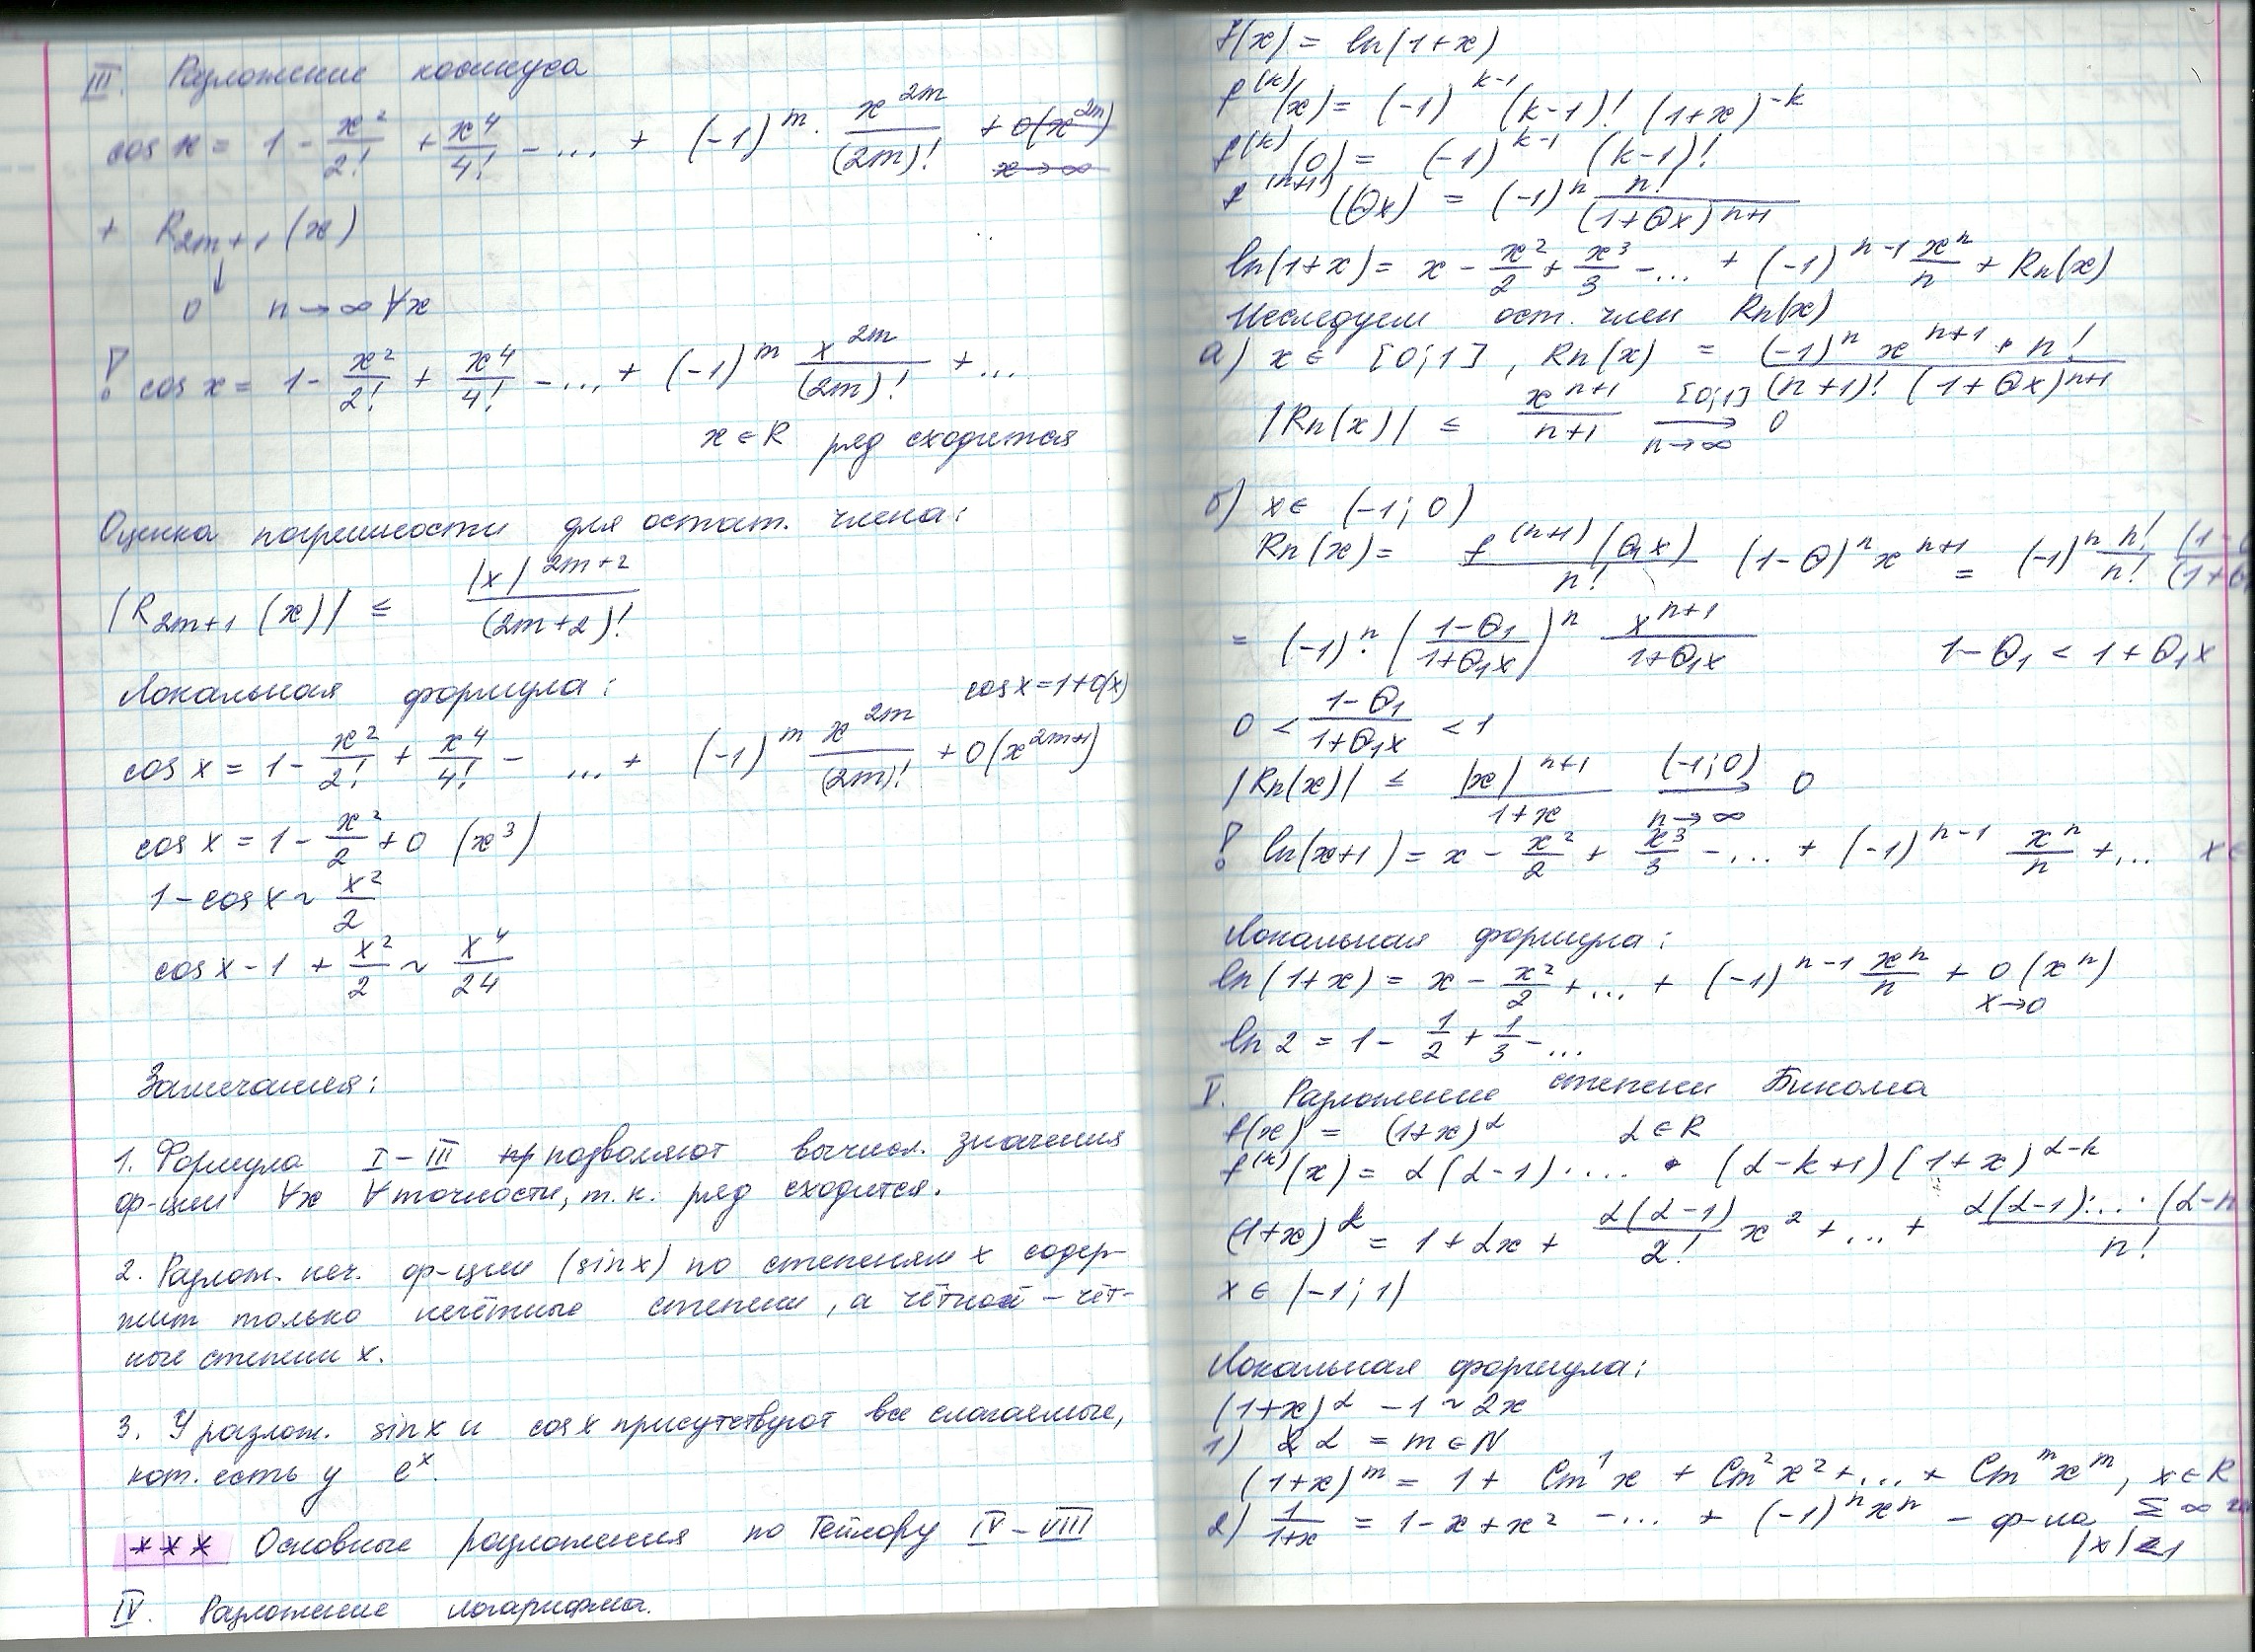 III. Разложение косинуса
cos x = 1 - x²/2! + x⁴/4! - ... + (-1)^m · x^(2m)/(2m)! + o(x^(2m)) x→∞
+ R_(2m+1) (x)
↓
0 n→∞ ∀x
! cos x = 1 - x²/2! + x⁴/4! - ... + (-1)^m x^(2m)/(2m)! + ...
x ∈ R ряд сходится
Оценка погрешности для остат. члена:
|R_(2m+1) (x)| ≤ |x|^(2m+2)/(2m+2)!
Локальная формула: cos x = 1 + o(x)
cos x = 1 - x²/2! + x⁴/4! - ... + (-1)^m x^(2m)/(2m)! + o(x^(2m+1))
cos x = 1 - x²/2 + o (x³)
1 - cos x ~ x²/2
cos x - 1 + x²/2 ~ x⁴/24
Замечания:
1. Формула I - III позволяют вычисл. значения
ф-ции ∀x ∀ точности, т.к. ряд сходится.
2. Разлож. неч. ф-ции (sin x) по степеням x содер-
жит только нечётные степени, а чётной - чёт-
ные степени x.
3. У разлож. sin x и cos x присутствуют все слагаемые,
кот. есть у e^x.
*** Основные разложения по Тейлору IV - VIII
IV. Разложение логарифма.
f(x) = ln(1+x)
f^(k)(x) = (-1)^(k-1) (k-1)! (1+x)^(-k)
f^(k)(0) = (-1)^(k-1) (k-1)!
f^(n+1)(Θx) = (-1)^n n!/(1+Θx)^(n+1)
ln(1+x) = x - x²/2 + x³/3 - ... + (-1)^(n-1) x^n/n + Rn(x)
Исследуем ост. член Rn(x)
а) x ∈ [0;1], Rn(x) = (-1)^n x^(n+1) · n!/((n+1)! (1+Θx)^(n+1))
|Rn(x)| ≤ x^(n+1)/(n+1) [0;1] → n→∞ 0
б) x ∈ (-1; 0)
Rn(x) = f^(n+1)(Θ₁x)/n! (1-Θ)^n x^(n+1) = (-1)^n n!/n!
= (-1)^n · ((1-Θ₁)/(1+Θ₁x))^n x^(n+1)/(1+Θ₁x) 1-Θ₁ < 1+Θ₁x
0 < (1-Θ₁)/(1+Θ₁x) < 1
|Rn(x)| ≤ |x|^(n+1)/(1+x) (-1;0) → n→∞ 0
! ln(x+1) = x - x²/2 + x³/3 - ... + (-1)^(n-1) x^n/n + ... x ∈
Локальная формула:
ln(1+x) = x - x²/2 + ... + (-1)^(n-1) x^n/n + o(x^n) x→0
ln 2 = 1 - 1/2 + 1/3 - ...
V. Разложение степени Бинома
f(x) = (1+x)^α α ∈ R
f^(k)(x) = α(α-1)· ... · (α-k+1)(1+x)^(α-k)
(1+x)^α = 1 + αx + α(α-1)/2! x² + ... + α(α-1)·...·(α-n/n!
x ∈ (-1; 1)
Локальная формула:
(1+x)^α - 1 ~ αx
1) α = m ∈ N
(1+x)^m = 1 + Cm¹ x + Cm² x² + ... + Cm^m x^m, x ∈ R
2) 1/(1+x) = 1 - x + x² - ... + (-1)^n x^n - ф-ла Σ ∞
|x|<1